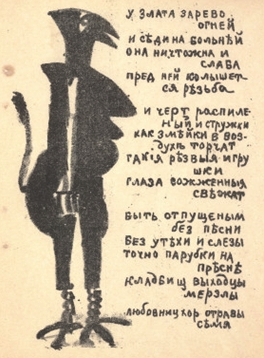 У ЗЛАТА ЗАРЕВО
ОГНЕЙ
И СѢДИНА БОЛЬНѢЙ
ОНА НИЧТОЖНА И
СЛАБА
ПРЕД НЕЙ КОЛЫШЕТ
СЯ РѢЗЬБА
И ЧЕРТ РАСПИЛЕ-
НЫЙ И СТРУЖКИ
КАК ЗМѢЙКИ В ВОЗ-
ДУХѢ ТОРЧАТ
ТАКІЯ РѢЗВЫЯ ИГРУ
ШКИ
ГЛАЗА ВОЖЖЕННЫЯ
СВѢЖАТ
БЫТЬ ОТПУЩЕНЫМ
БЕЗ ПѢСНИ
БЕЗ УТѢХИ И СЛЕЗЫ
ТОЧНО ПАРУБКИ НА
ПРѢСНѢ
КЛАДБИЩ ВЫХОДЦЫ
МЕРЗЛЫ
ЛЮБОВНИЦ ХОР ОТРАВЫ
СѢМЯ